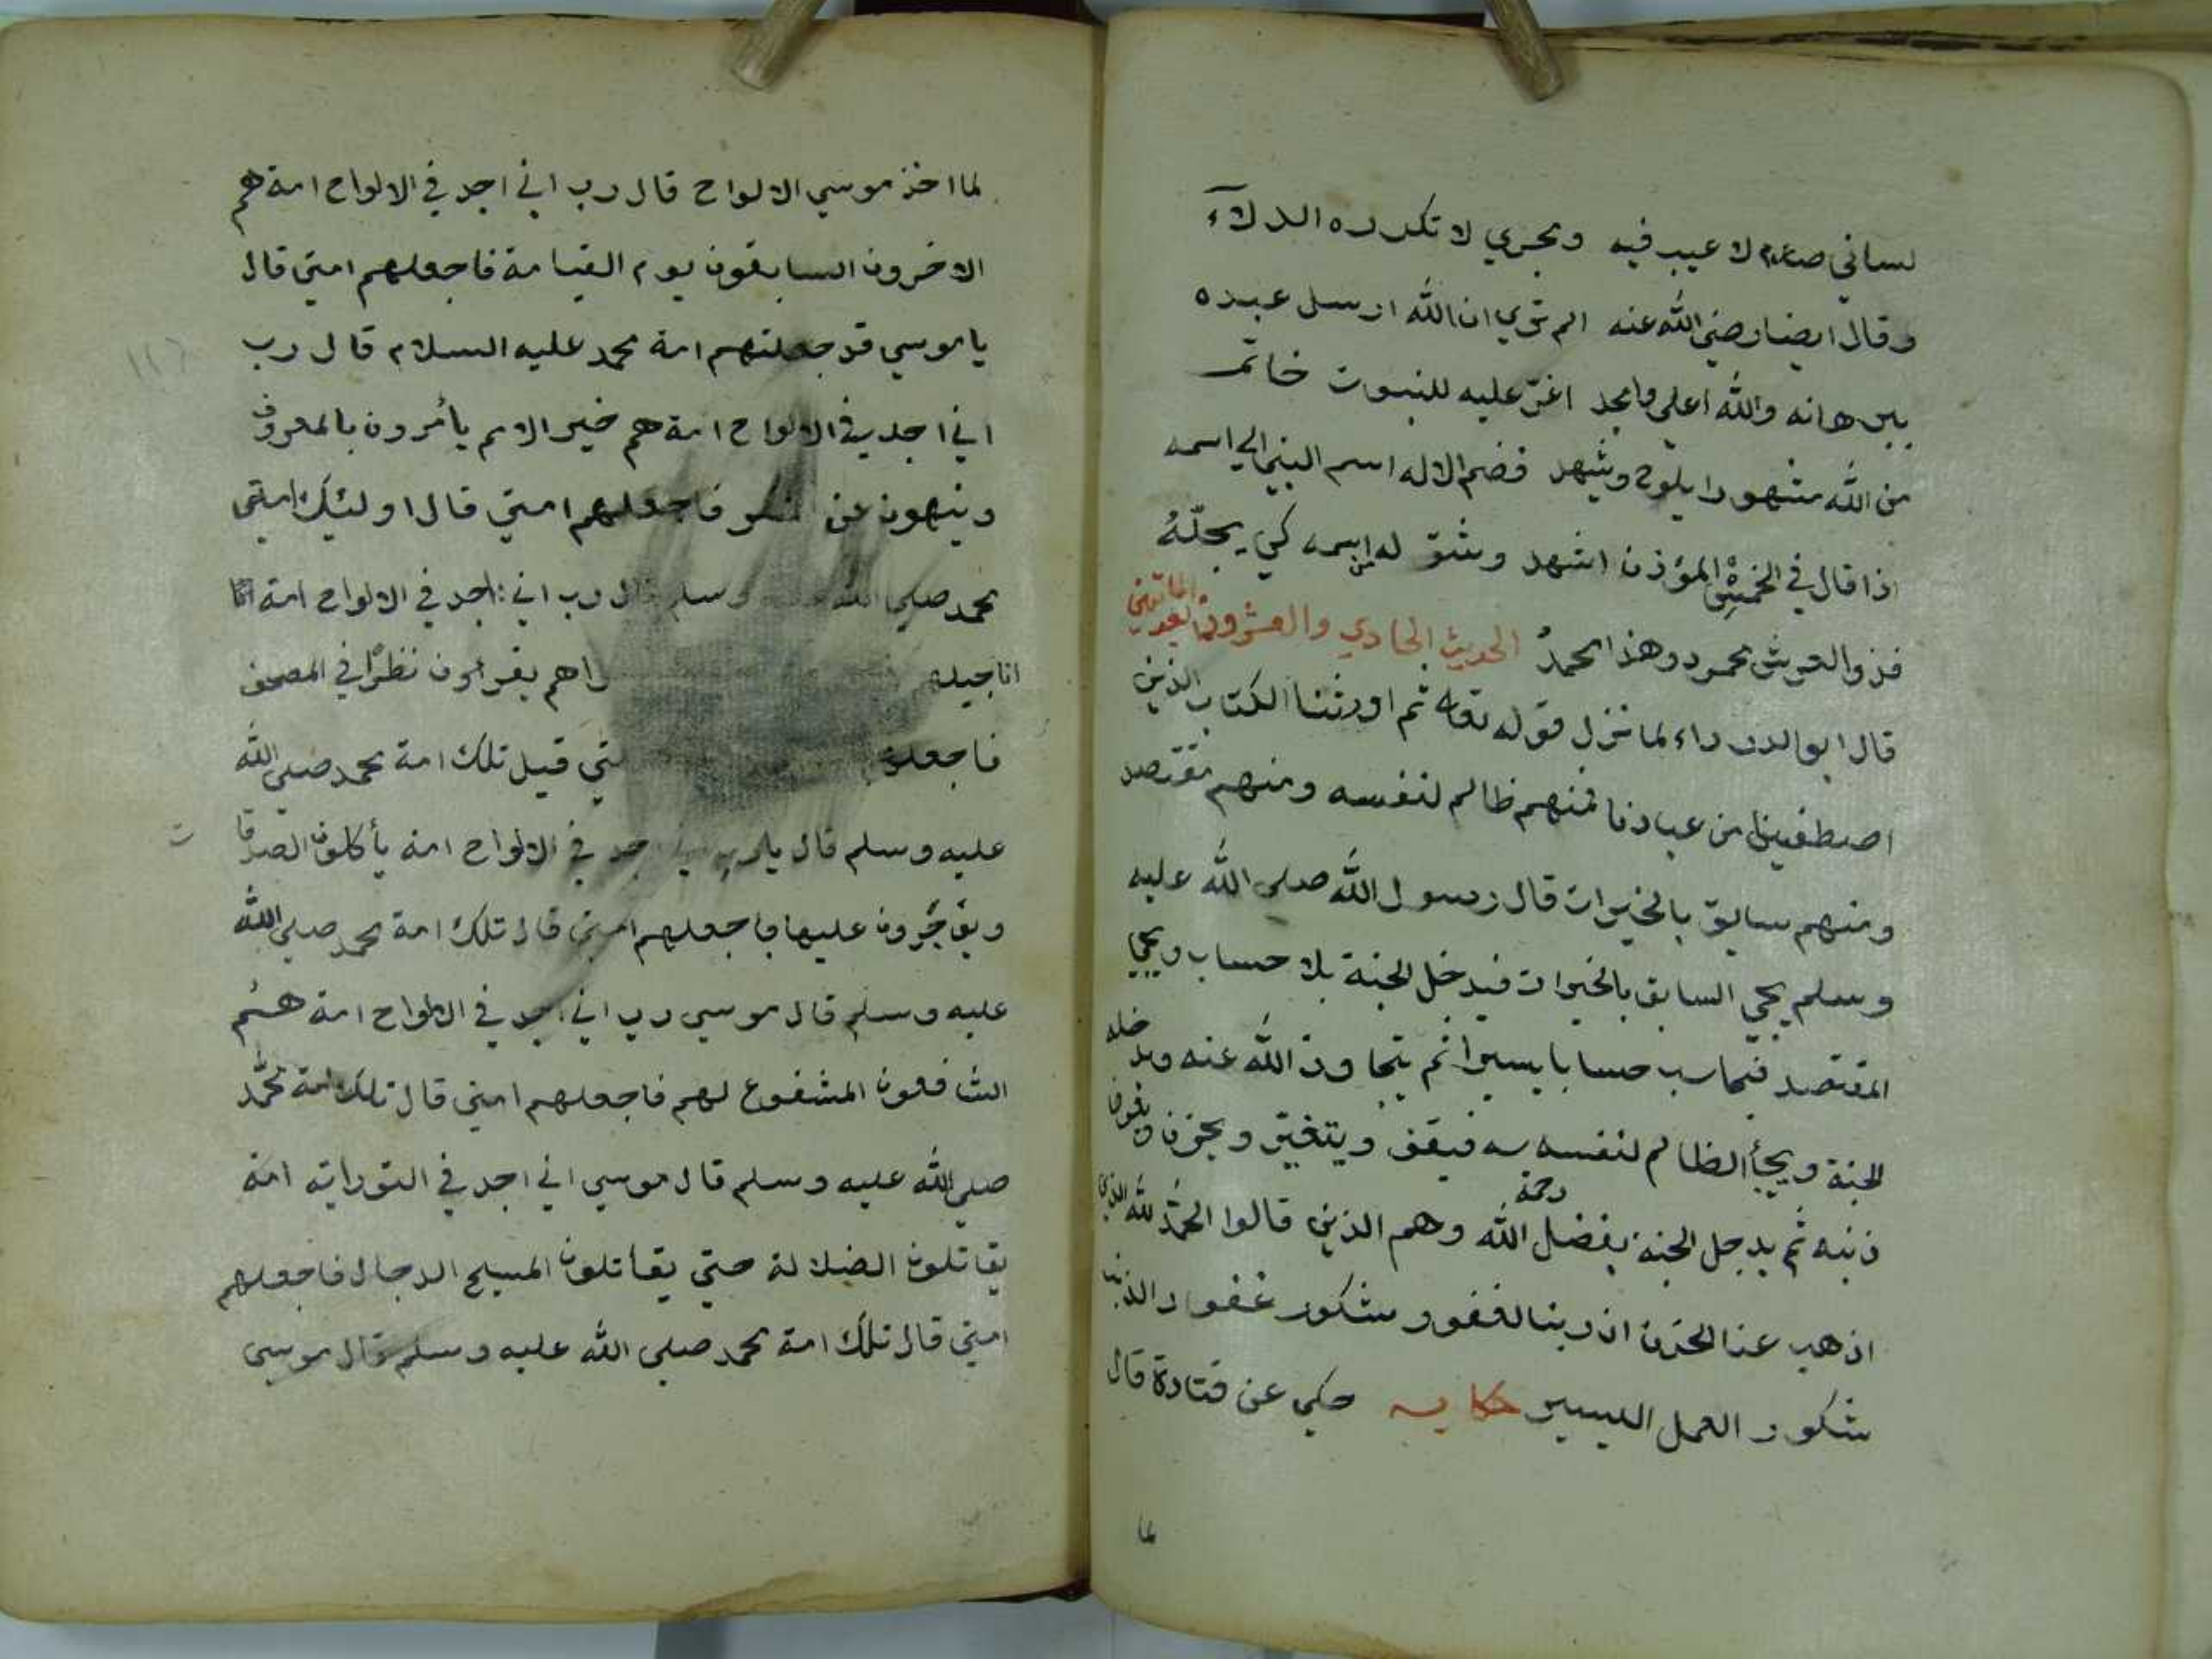 لساني صارم لا عيب فيه وبحري لا تكدره الدلاء
وقال ايضا رضي الله عنه الم تري ان الله ارسل عبده
ببرهانه والله اعلي وامجد اغر عليه للنبوت خاتم
من الله مشهودا يلوح ويشهد فضم الاله اسم النبي الي اسمه
اذا قال في الخمس المؤذن اشهد وشق له من اسمه كي يجله
فذو العرش محمود وهذا محمد الحديث الحادي والعشرون بعد المائتين
قال ابو الدرداء لما نزل قوله تعالى ثم اورثنا الكتاب الذين
اصطفينا من عبادنا فمنهم ظالم لنفسه ومنهم مقتصد
ومنهم سابق بالخيرات قال رسول الله صلى الله عليه
وسلم يجي السابق بالخيرات فيدخل الجنة بلا حساب ويجيا
المقتصد فيحاسب حسابا يسيرا ثم يتجاوز الله عنه ويدخله
الجنة ويجيأ الظالم لنفسه فيقف ويتغير ويحزن
ذنبه ثم يدخل الجنة بفضل رحمة الله وهم الذين قالوا الحمد لله الذي
اذهب عنا الحزن ان ربنا لغفور شكور غفوار الذنب
شكور العمل اليسير حكايه حكي عن قتادة قال
لما
لما اخذ موسي الالواح قال رب اني اجد في الالواح امة هم
الاخرون السابقون يوم القيامة فاجعلهم امتي قال
يا موسي قد جعلتهم امة محمد عليه السلام قال رب
اني اجد في الالواح امة هم خير الامم يأمرون بالمعروف
وينهون عن فاجعلهم امتي قال اولئيك امتي
محمد صلي الله وسلم قال رب اني اجد في الالواح امة
اناجيلهم يقراون نظرا في المصحف
فاجعلهم قيل تلك امة محمد صلي الله
عليه وسلم قال يارب اجد في الالواح امة يأكلون الصدقات
ويؤجرون عليها فاجعلهم امتي قال تلك امة محمد صلي الله
عليه وسلم قال موسي رب اني اجد في الالواح امة هم
الشافعون المشفوع لهم فاجعلهم امتي قال تلك امة محمد
صلي الله عليه وسلم قال موسي اني اجد في التوراية امة
يقاتلون الضلالة حتي يقاتلون المسيح الدجال فاجعلهم
امتي قال تلك امة محمد صلي الله عليه وسلم قال موسي